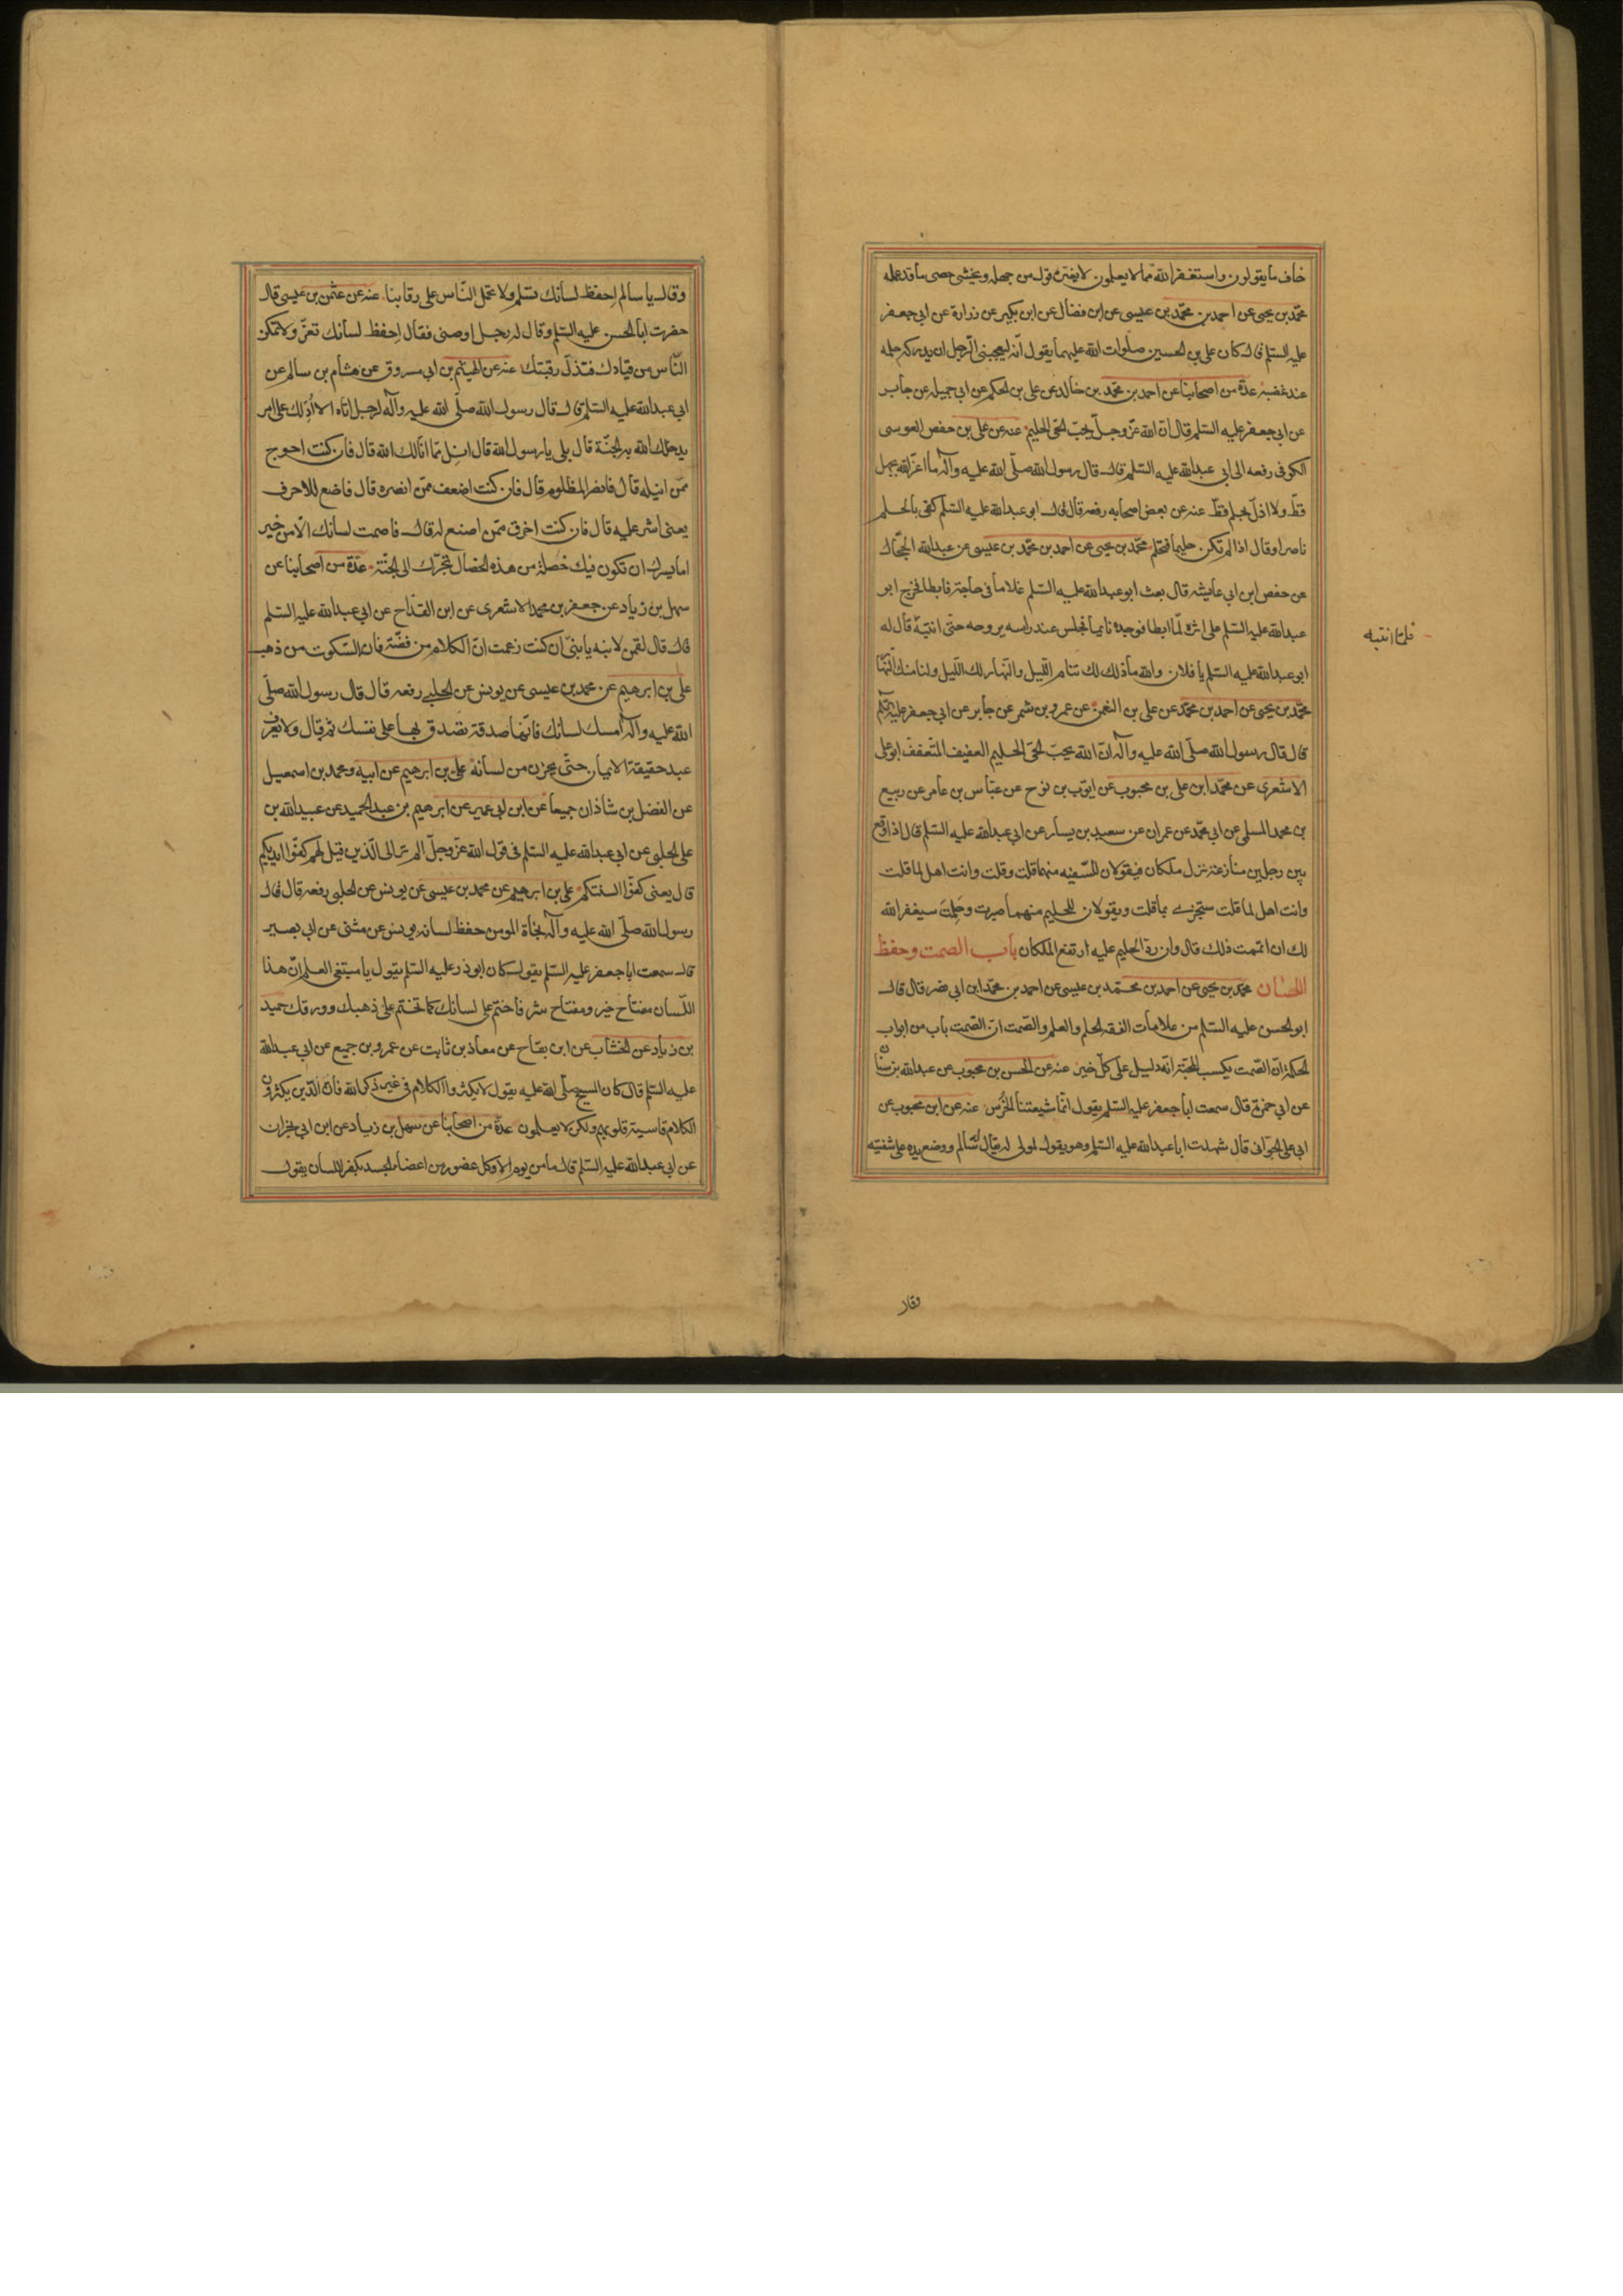 خاف ما يقولون واستغفر الله مما لا يعلمون لا يغتره قول من جهله ويخشى حصى ما قد عمله
محمد بن يحيى عن احمد بن محمد بن عيسى عن ابن فضال عن ابن بكير عن زرارة عن ابي جعفر
عليه السلم قال كان علي بن الحسين صلوات الله عليهما يقول انه ليعجبني الرجل ان يدركه حلمه
عند غضبه عدة من اصحابنا عن احمد بن محمد بن خالد عن علي بن الحكم عن ابي جميله عن جابر
عن ابي جعفر عليه السلم قال ان الله عز وجل يحب الحي الحليم عنه عن علي بن حفص العوسى
الكوفى رفعه الى ابي عبدالله عليه السلم قال قال رسول الله صلى الله عليه وآله ما اعز الله بجهل
قط ولا اذل بحلم قط عنه عن بعض اصحابه رفعه قال قال ابو عبدالله عليه السلم كفى بالحلم
ناصرا وقال اذا لم تكن حليما فتحلم محمد بن يحيى عن احمد بن محمد بن عيسى عن عبدالله الحجال
عن حفص ابن ابي عايشه قال بعث ابو عبدالله عليه السلم غلاما في حاجة فابطا فخرج ابو
عبدالله عليه السلم على اثره لما ابطا فوجده نايما فجلس عند راسه يروحه حتى انتبه قال له
فلما انتبه
ابو عبدالله عليه السلم يا فلان والله ما ذلك لك تنام الليل والنهار لك الليل ولنا منك النهار
محمد بن يحيى عن احمد بن محمد عن علي بن النعمن عن عمرو بن شمر عن جابر عن ابي جعفر عليه السلم
قال قال رسول الله صلى الله عليه وآله ان الله يحب الحي الحليم العفيف المتعفف ابو علي
الاشعري عن محمد ابن علي بن محبوب عن ايوب بن نوح عن عباس بن عامر عن ربيع
بن محمد المسلي عن ابي محمد عن عمران عن سعيد بن يسار عن ابي عبدالله عليه السلم قال اذا وقع
بين رجلين منازعة نزل ملكان فيقولان للسفيه منهما قلت وقلت وانت اهل لما قلت
وانت اهل لما قلت ستجزى بما قلت ويقولان للحليم منهما صبرت وحلمت سيغفر الله
لك ان اتممت ذلك قال وان رد الحليم عليه ارتفع الملكان باب الصمت وحفظ
اللسان محمد بن يحيى عن احمد بن محمد بن عيسى عن احمد بن محمد ابن ابي نصر قال قال
ابو الحسن عليه السلم من علامات الفقه الحلم والعلم والصمت ان الصمت باب من ابواب
الحكمة ان الصمت يكسب المحبة انه دليل على كل خير عنه عن الحسن بن محبوب عن عبدالله بن سنان
عن ابي حمزة قال سمعت ابا جعفر عليه السلم يقول انما شيعتنا الخرس عنه عن ابن محبوب عن
ابي علي الجواني قال شهدت ابا عبدالله عليه السلم وهو يقول لمولى له يقال له سالم ووضع يده على شفتيه
وقال
وقال يا سالم احفظ لسانك تسلم ولا تحمل الناس على رقابنا عنه عن عثمن بن عيسى قال
حضرت ابا الحسن عليه السلم وقال له رجل اوصنى فقال احفظ لسانك تعز ولا تمكن
الناس من قيادك فتذل رقبتك عنه عن الهيثم بن ابي مسروق عن هشام بن سالم عن
ابي عبدالله عليه السلم قال قال رسول الله صلى الله عليه وآله لرجل اتاه الا ادلك على امر
يدخلك الله به الجنة قال بلى يا رسول الله قال انل مما انالك الله قال فان كنت احوج
ممن انيله قال فانصر المظلوم قال فان كنت اضعف ممن انصره قال فاصنع للاخرق
يعنى اشر عليه قال فان كنت اخرق ممن اصنع له قال فاصمت لسانك الا من خير
اما يسرك ان تكون فيك خصلة من هذه الخصال تجرك الى الجنة عدة من اصحابنا عن
سهل بن زياد عن جعفر بن محمد الاشعرى عن ابن القداح عن ابي عبدالله عليه السلم
قال قال لقمن لابنه يا بني ان كنت زعمت ان الكلام من فضة فان السكوت من ذهب
علي بن ابرهيم عن محمد بن عيسى عن يونس عن الحلبي رفعه قال قال رسول الله صلى
الله عليه وآله امسك لسانك فانها صدقة تصدق بها على نفسك ثم قال ولا يعرف
عبد حقيقة الايمان حتى يخزن من لسانه علي بن ابرهيم عن ابيه ومحمد بن اسمعيل
عن الفضل بن شاذان جميعا عن ابن ابي عمير عن ابرهيم بن عبد الحميد عن عبيد الله بن
علي الحلبي عن ابي عبدالله عليه السلم في قول الله عز وجل الم تر الى الذين قيل لهم كفوا ايديكم
قال يعنى كفوا السنتكم علي بن ابرهيم عن محمد بن عيسى عن يونس عن الحلبي رفعه قال قال
رسول الله صلى الله عليه وآله نجاة المومن حفظ لسانه يونس عن مثنى عن ابي بصير
قال سمعت ابا جعفر عليه السلم يقول كان ابو ذر عليه السلم يقول يا مبتغى العلم ان هذا
اللسان مفتاح خير ومفتاح شر فاختم على لسانك كما تختم على ذهبك وورقك حميد
بن زياد عن الخشاب عن ابن بقاح عن معاذ بن ثابت عن عمرو بن جميع عن ابي عبدالله
عليه السلم قال كان المسيح صلى الله عليه يقول لا يكثروا الكلام في غير ذكر الله فان الذين يكثرون
الكلام قاسية قلوبهم ولكن لا يعلمون عدة من اصحابنا عن سهل بن زياد عن ابن ابي نجران
عن ابي عبدالله عليه السلم قال ما من يوم الا وكل عضو من اعضاء الجسد يكفر اللسان يقول